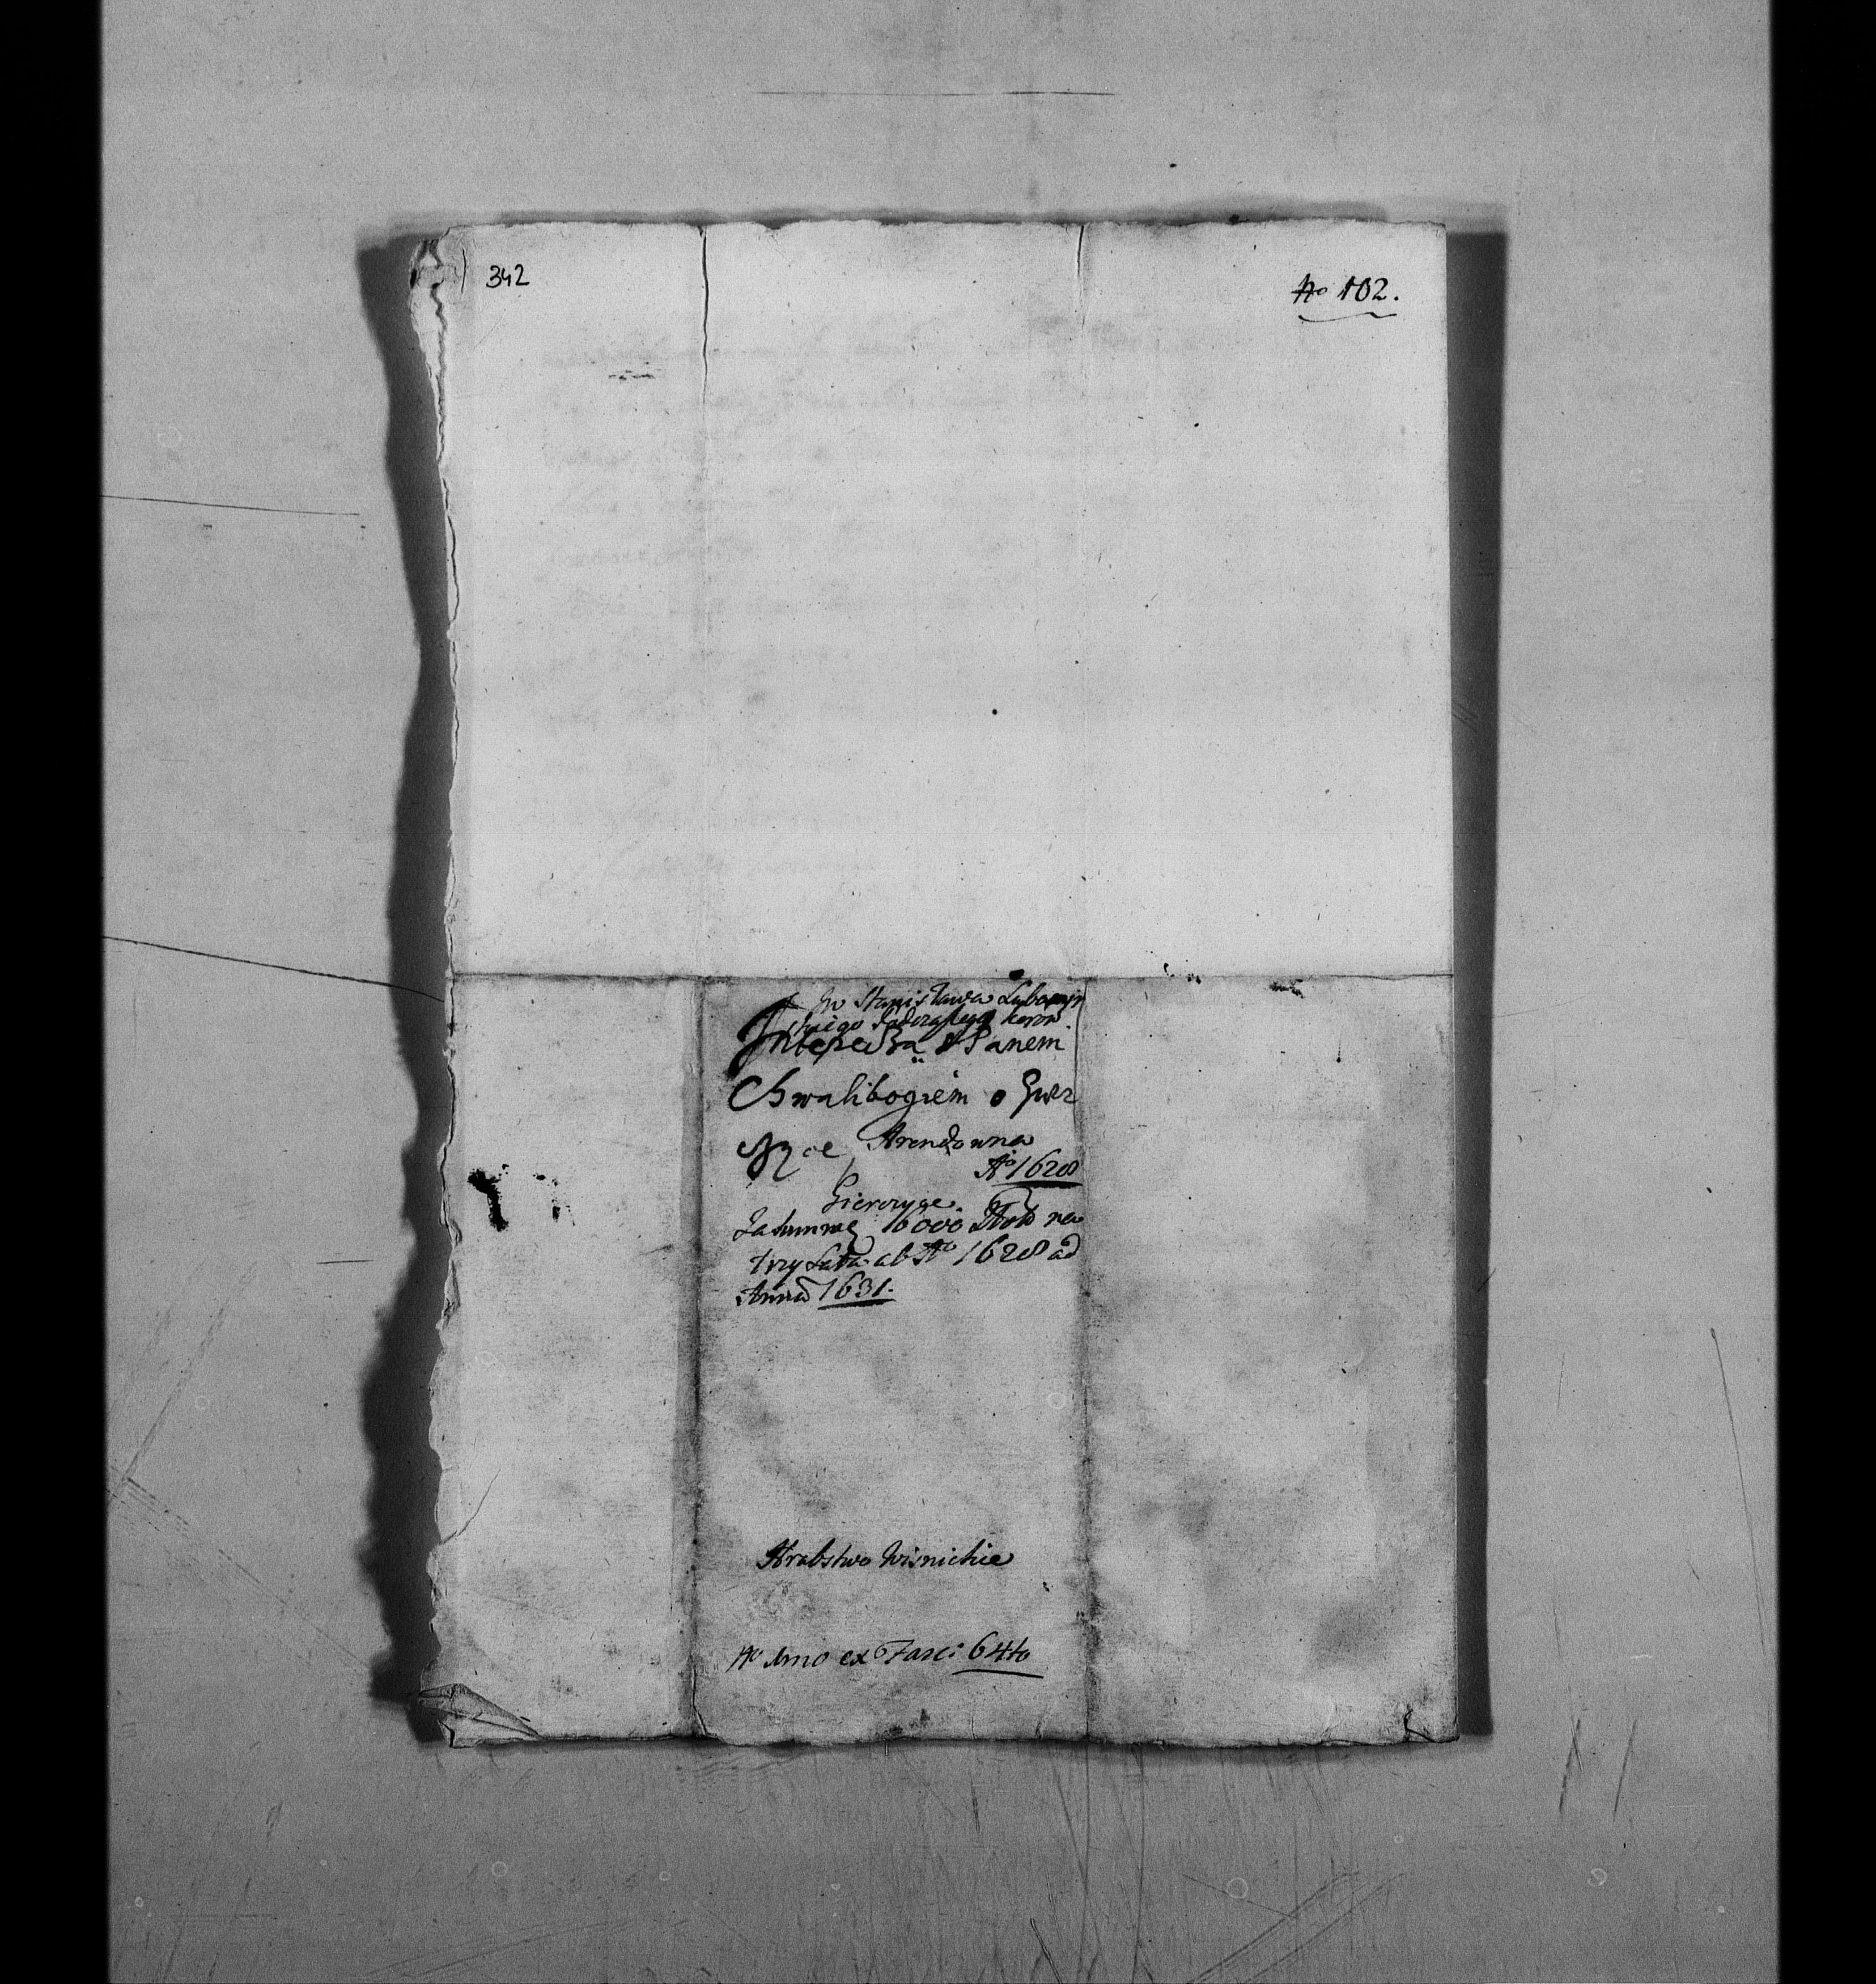 342
No 102.
JW Stanisława Lubomir
skiego Podczaszego koron.
Intercyza z Panem
Chwalibogiem o Gier
czyce Arendowna
Ao 1628
Gierczyce.
Za summę 6000 Złoto na
trzy Lata ab Ao 1628 ad
Annū 1631.
Hrabstwo Wisnickie
No 1mo ex Fasci 64to